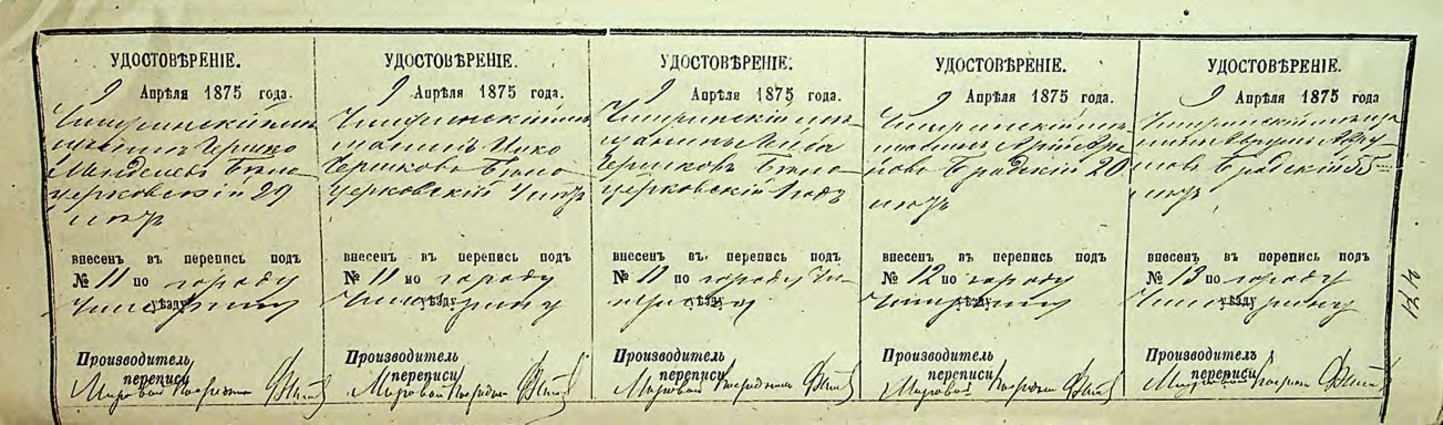 УДОСТОВѢРЕНІЕ.
9 Апрѣля 1875 года.
Чигиринскій мѣ-
щанинъ Гершко
Менделевъ Бѣло
церковскій 29
лѣтъ
внесенъ въ перепись подъ
№ 11 по городу
уѣзду Чигирину
Производитель
переписи
Мировой Посредникъ
УДОСТОВѢРЕНІЕ.
9 Апрѣля 1875 года.
Чигиринскій мѣ-
щанинъ Ицко
Гершковъ Бѣло
церковскій 4 лѣтъ
внесенъ въ перепись подъ
№ 11 по городу
уѣзду Чигирину
Производитель
переписи
Мировой Посредникъ
УДОСТОВѢРЕНІЕ.
9 Апрѣля 1875 года.
Чигиринскій мѣ-
щанинъ Лейба
Гершковъ Бѣло
церковскій 1 годъ
внесенъ въ перепись подъ
№ 11 по городу Чи-
уѣзду гирину
Производитель
переписи
Мировой Посредникъ
УДОСТОВѢРЕНІЕ.
9 Апрѣля 1875 года.
Чигиринскій мѣ-
щанинъ Арій
Бродскій 20
лѣтъ
внесенъ въ перепись подъ
№ 12 по городу
уѣзду Чигирину
Производитель
переписи
Мировой Посредникъ
УДОСТОВѢРЕНІЕ.
9 Апрѣля 1875 года
Чигиринскій мѣща
нинъ
Бродскій 55
лѣтъ
внесенъ въ перепись подъ
№ 13 по городу
уѣзду Чигирину
Производитель
переписи
Мировой Посредникъ